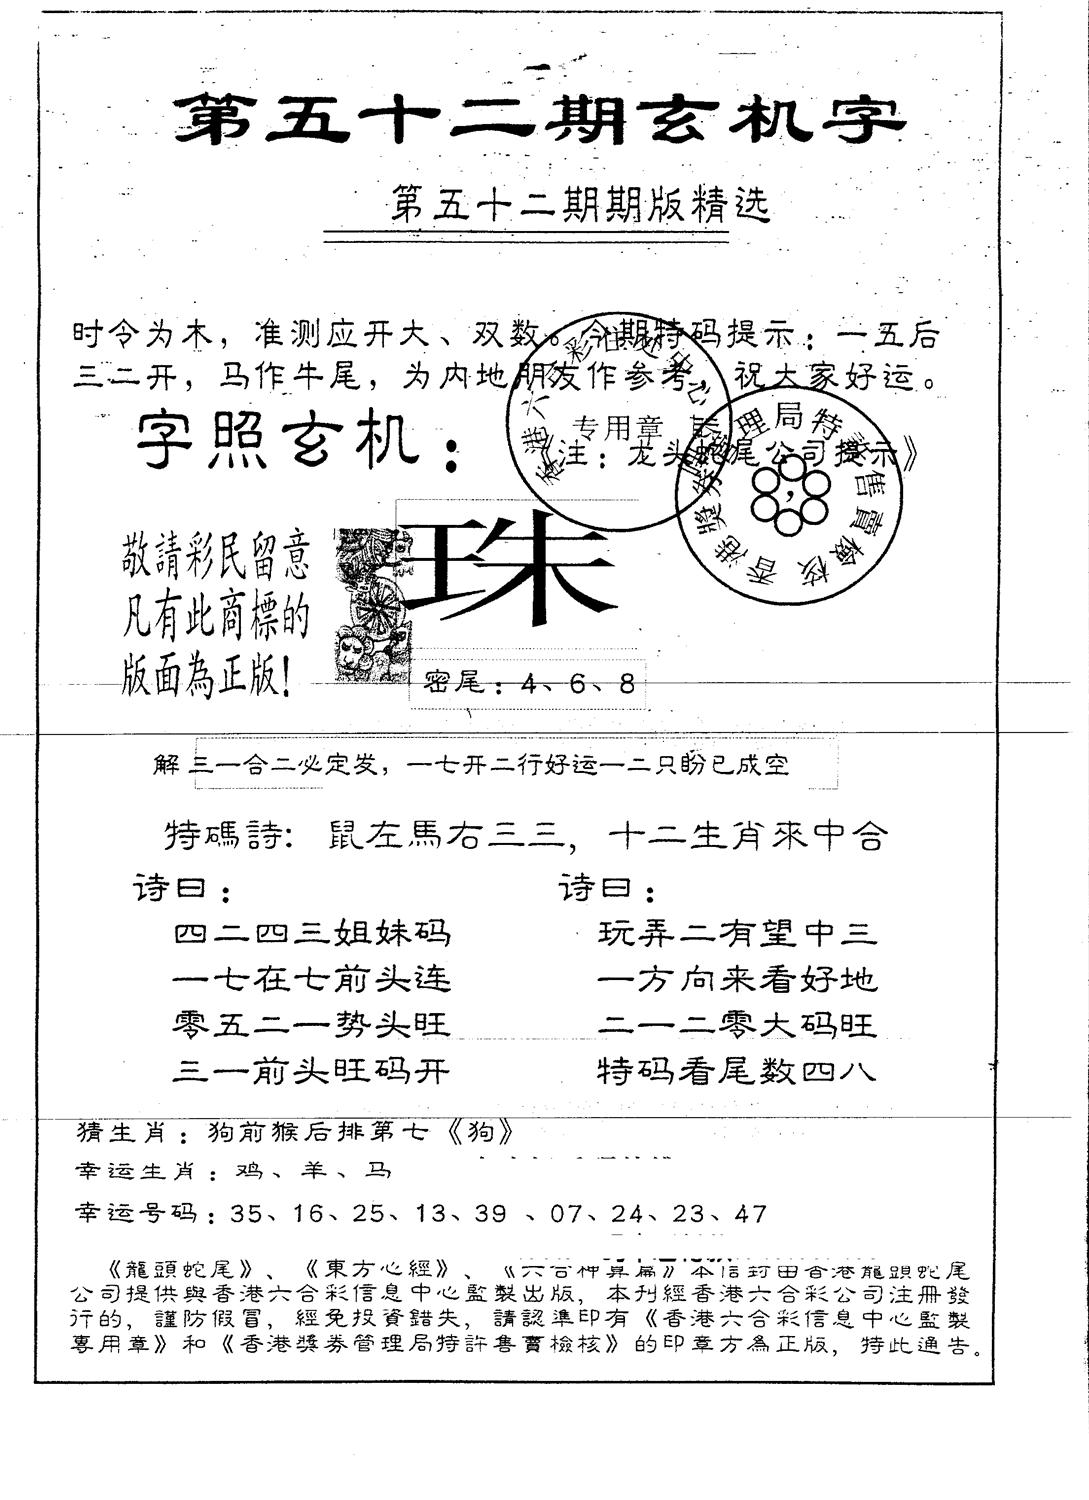 第五十二期玄机字
第五十二期期版精选
时令为木，准测应开大、双数。今期特码提示：一五后
三二开，马作牛尾，为内地朋友作参考，祝大家好运。
字照玄机：
《注：龙头蛇尾公司提示》
专用章
香港六合彩
中心
香港獎券管理局特許售賣檢核
珠
敬請彩民留意
凡有此商標的
版面為正版!
密尾：4、6、8
解 三一合二必定发，一七开二行好运一二只盼已成空
特碼詩: 鼠左馬右三三，十二生肖來中合
诗曰：
四二四三姐妹码
一七在七前头连
零五二一势头旺
三一前头旺码开
诗曰：
玩弄二有望中三
一方向来看好地
二一二零大码旺
特码看尾数四八
猜生肖：狗前猴后排第七《狗》
幸运生肖：鸡、羊、马
幸运号码：35、16、25、13、39 、07、24、23、47
《龍頭蛇尾》、《東方心經》、《六合神算篇》本信封由香港龍頭蛇尾
公司提供與香港六合彩信息中心監製出版，本刊經香港六合彩公司注冊發
行的，謹防假冒，經免投資錯失，請認準印有《香港六合彩信息中心監製
專用章》和《香港獎券管理局特許售賣檢核》的印章方為正版，特此通告。